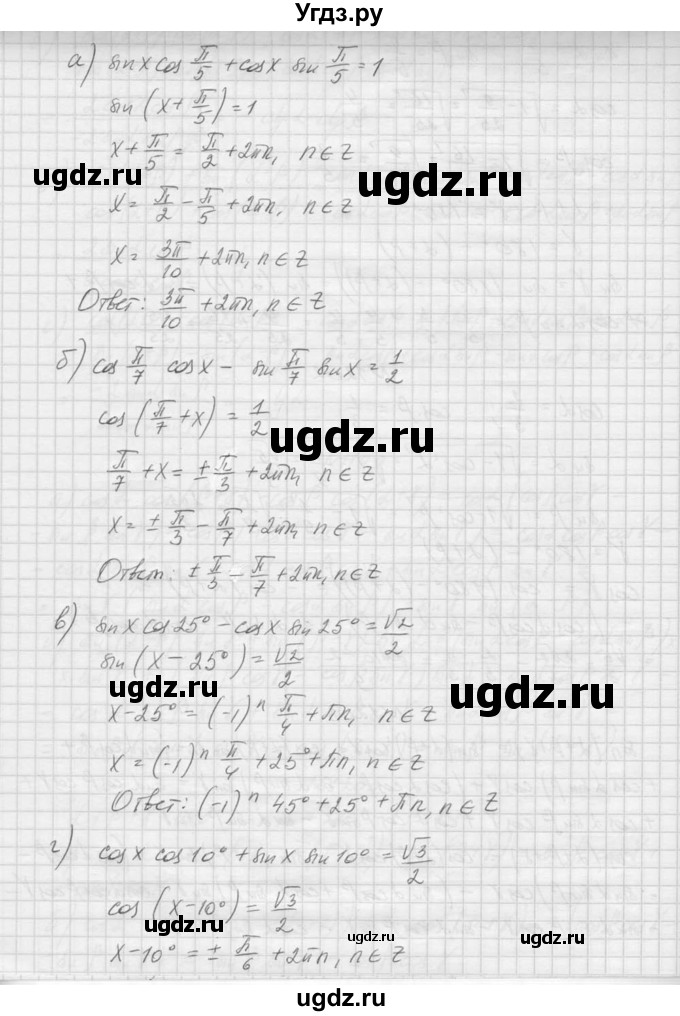 Угдз.ру
а) sin x cos π/5 + cos x sin π/5 = 1
sin (x + π/5) = 1
x + π/5 = π/2 + 2πn, n ∈ Z
ugdz.ru ugdz.ru
x = π/2 − π/5 + 2πn, n ∈ Z
x = 3π/10 + 2πn, n ∈ Z
Ответ: 3π/10 + 2πn, n ∈ Z
б) cos π/7 cos x − sin π/7 sin x = 1/2
cos (π/7 + x) = 1/2
ugdz.ru
π/7 + x = ± π/3 + 2πn, n ∈ Z
x = ± π/3 − π/7 + 2πn, n ∈ Z
Ответ: ± π/3 − π/7 + 2πn, n ∈ Z
в) sin x cos 25° − cos x sin 25° = √2/2
sin (x − 25°) = √2/2
ugdz.ru ugdz.ru
x − 25° = (−1)ⁿ π/4 + πn, n ∈ Z
x = (−1)ⁿ π/4 + 25° + πn, n ∈ Z
Ответ: (−1)ⁿ 45° + 25° + πn, n ∈ Z
г) cos x cos 10° + sin x sin 10° = √3/2
cos (x − 10°) = √3/2
ugdz.ru ugdz.ru ugdz.ru
x − 10° = ± π/6 + 2πn, n ∈ Z
ugdz.ru